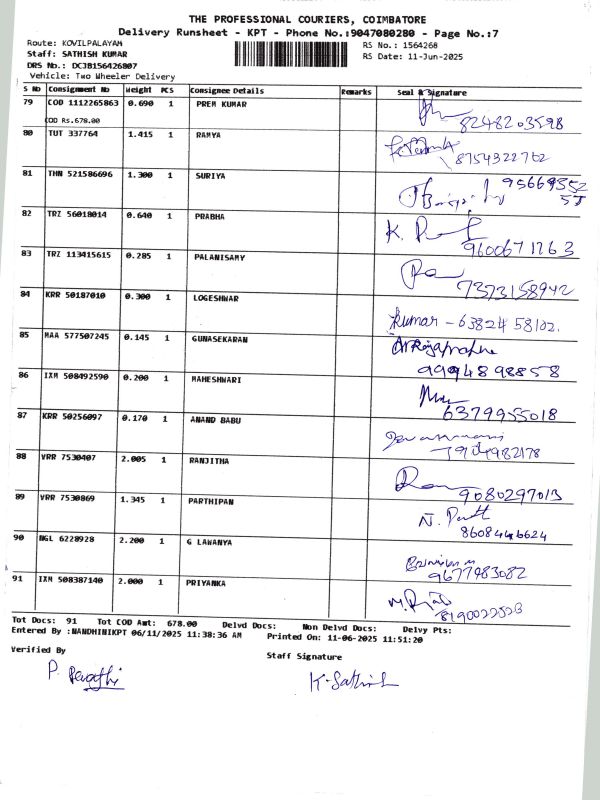 THE PROFESSIONAL COURIERS, COIMBATORE
Delivery Runsheet - KPT - Phone No.:9047080280 - Page No.:7
Route: KOVILPALAYAM
RS No.: 1564268
Staff: SATHISH KUMAR
RS Date: 11-Jun-2025
DRS No.: DCJB156426807
Vehicle: Two Wheeler Delivery
S No Consignment No Weight PCS Consignee Details Remarks Seal & Signature
79 COD 1112265863 0.690 1 PREM KUMAR
COD Rs.678.00
8248203598
80 TUT 337764 1.415 1 RAMYA
8754322762
81 THN 521586696 1.300 1 SURIYA
82 TRZ 56018014 0.640 1 PRABHA
9600671263
83 TRZ 113415615 0.285 1 PALANISAMY
7373158942
84 KRR 50187010 0.300 1 LOGESHWAR
kumar - 63824 58102.
85 MAA 577507245 0.145 1 GUNASEKARAN
9994898858
86 IXM 508492590 0.200 1 MAHESHWARI
6379955018
87 KRR 50256097 0.170 1 ANAND BABU
88 VRR 7530407 2.005 1 RANJITHA
9080297013
89 VRR 7530869 1.345 1 PARTHIPAN
8608446624
90 NGL 6228928 2.200 1 G LAWANYA
9677983082
91 IXM 508387140 2.000 1 PRIYANKA
8190022523
Tot Docs: 91 Tot COD Amt: 678.00 Delvd Docs: Non Delvd Docs: Delvy Pts:
Entered By :NANDHINIKPT 06/11/2025 11:38:36 AM Printed On: 11-06-2025 11:51:20
Verified By
Staff Signature
K. Sathish